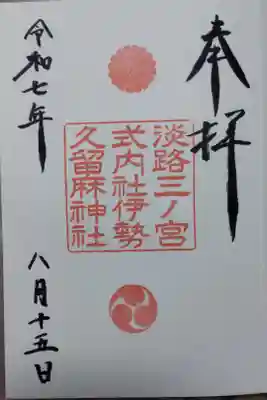 奉拝
淡路三ノ宮
式内社伊勢
久留麻神社
令和七年
八月十五日